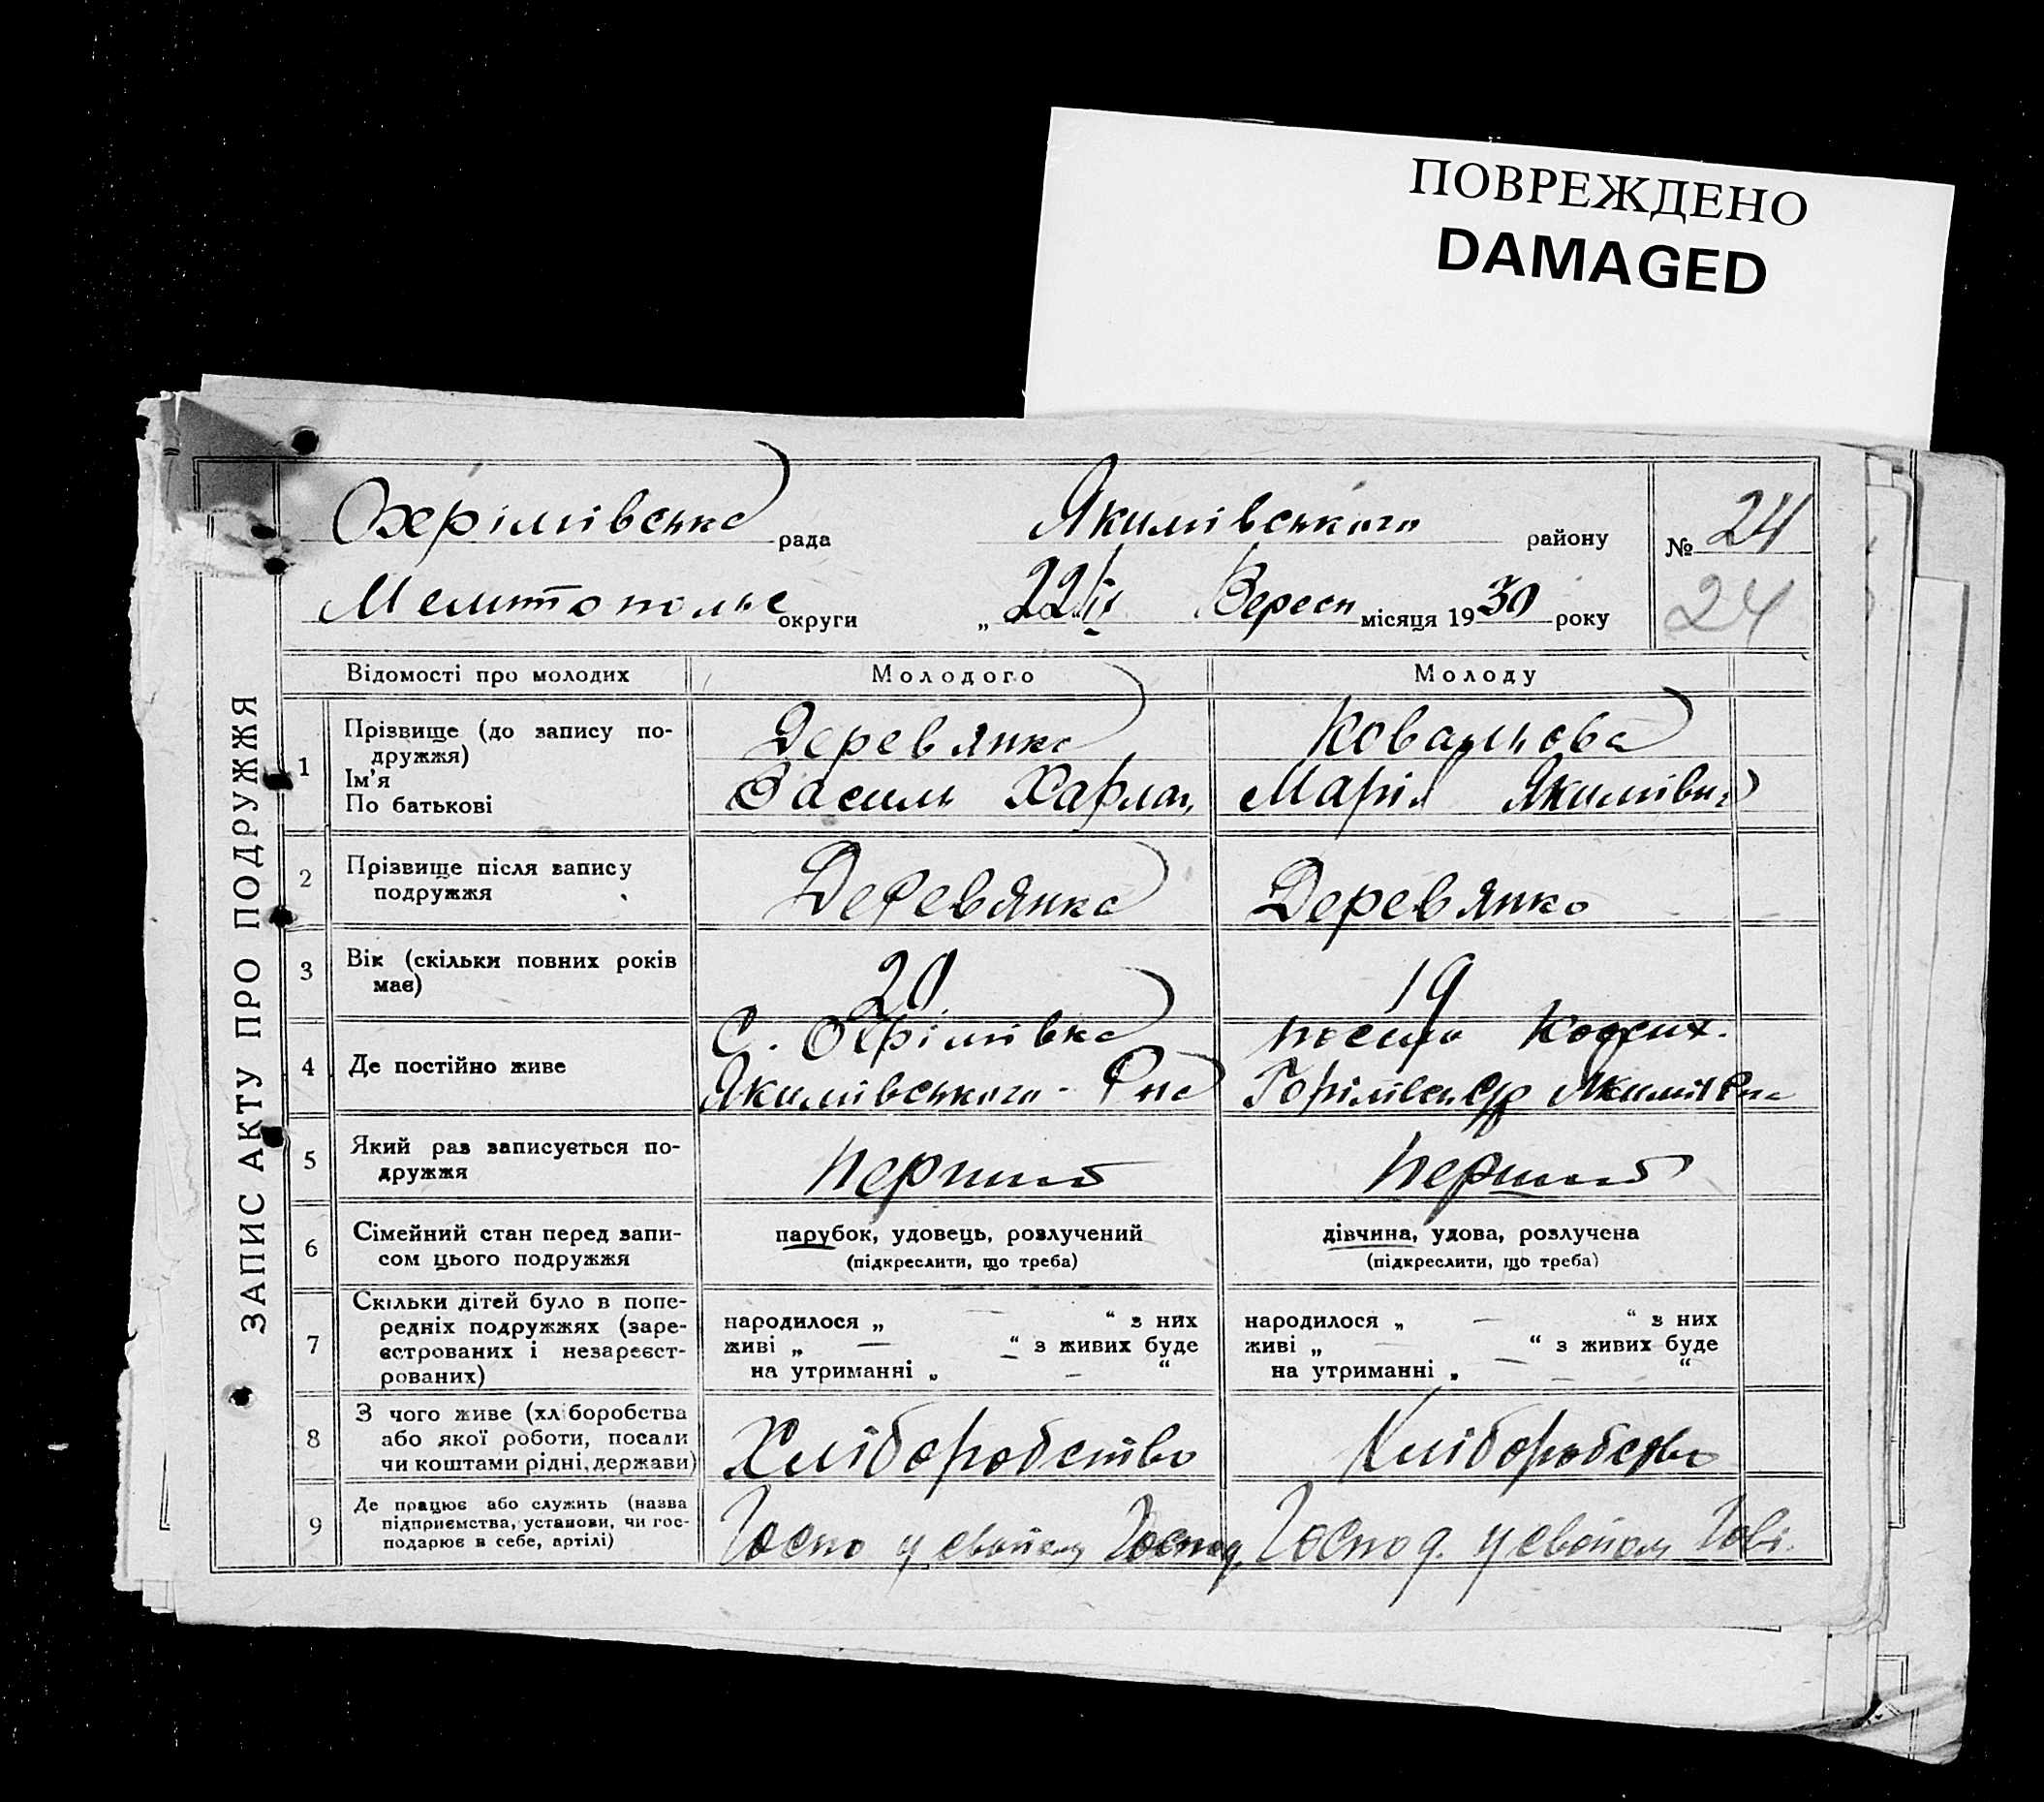 ПОВРЕЖДЕНО
DAMAGED
ЗАПИС АКТУ ПРО ПОДРУЖЖЯ
Охрімівська рада Якимівського району № 24
округи „ 22 Вересн місяця 1930 року 24
Відомості про молодих Молодого Молоду
1 Прізвище (до запису по-
дружжя)
Ім'я
По батькові
Деревянко Ковальова
Василь Харлам Марія Якимівна
2 Прізвище після запису
подружжя
Деревянко Деревянко
3 Вік (скільки повних років
має)
20 19
4 Де постійно живе
С. Охрімівка
Якимівського Р-на
5 Який раз записується по-
дружжя
перший перший
6 Сімейний стан перед запи-
сом цього подружжя
парубок, удовець, розлучений дівчина, удова, розлучена
(підкреслити, що треба) (підкреслити, що треба)
7 Скільки дітей було в попе-
редніх подружжях (заре-
єстрованих і незареєст-
рованих)
народилося „ — “ з них народилося „ — “ з них
живі „ — “ з живих буде живі „ — “ з живих буде
на утриманні „ — “ на утриманні „ — “
8 З чого живе (хліборобства
або якої роботи, посади
чи коштами рідні, держави)
Хліборобство Хліборобство
9 Де працює або служить (назва
підприємства, установи, чи гос-
подарює в себе, артілі)
у своїом Господ. у своїом